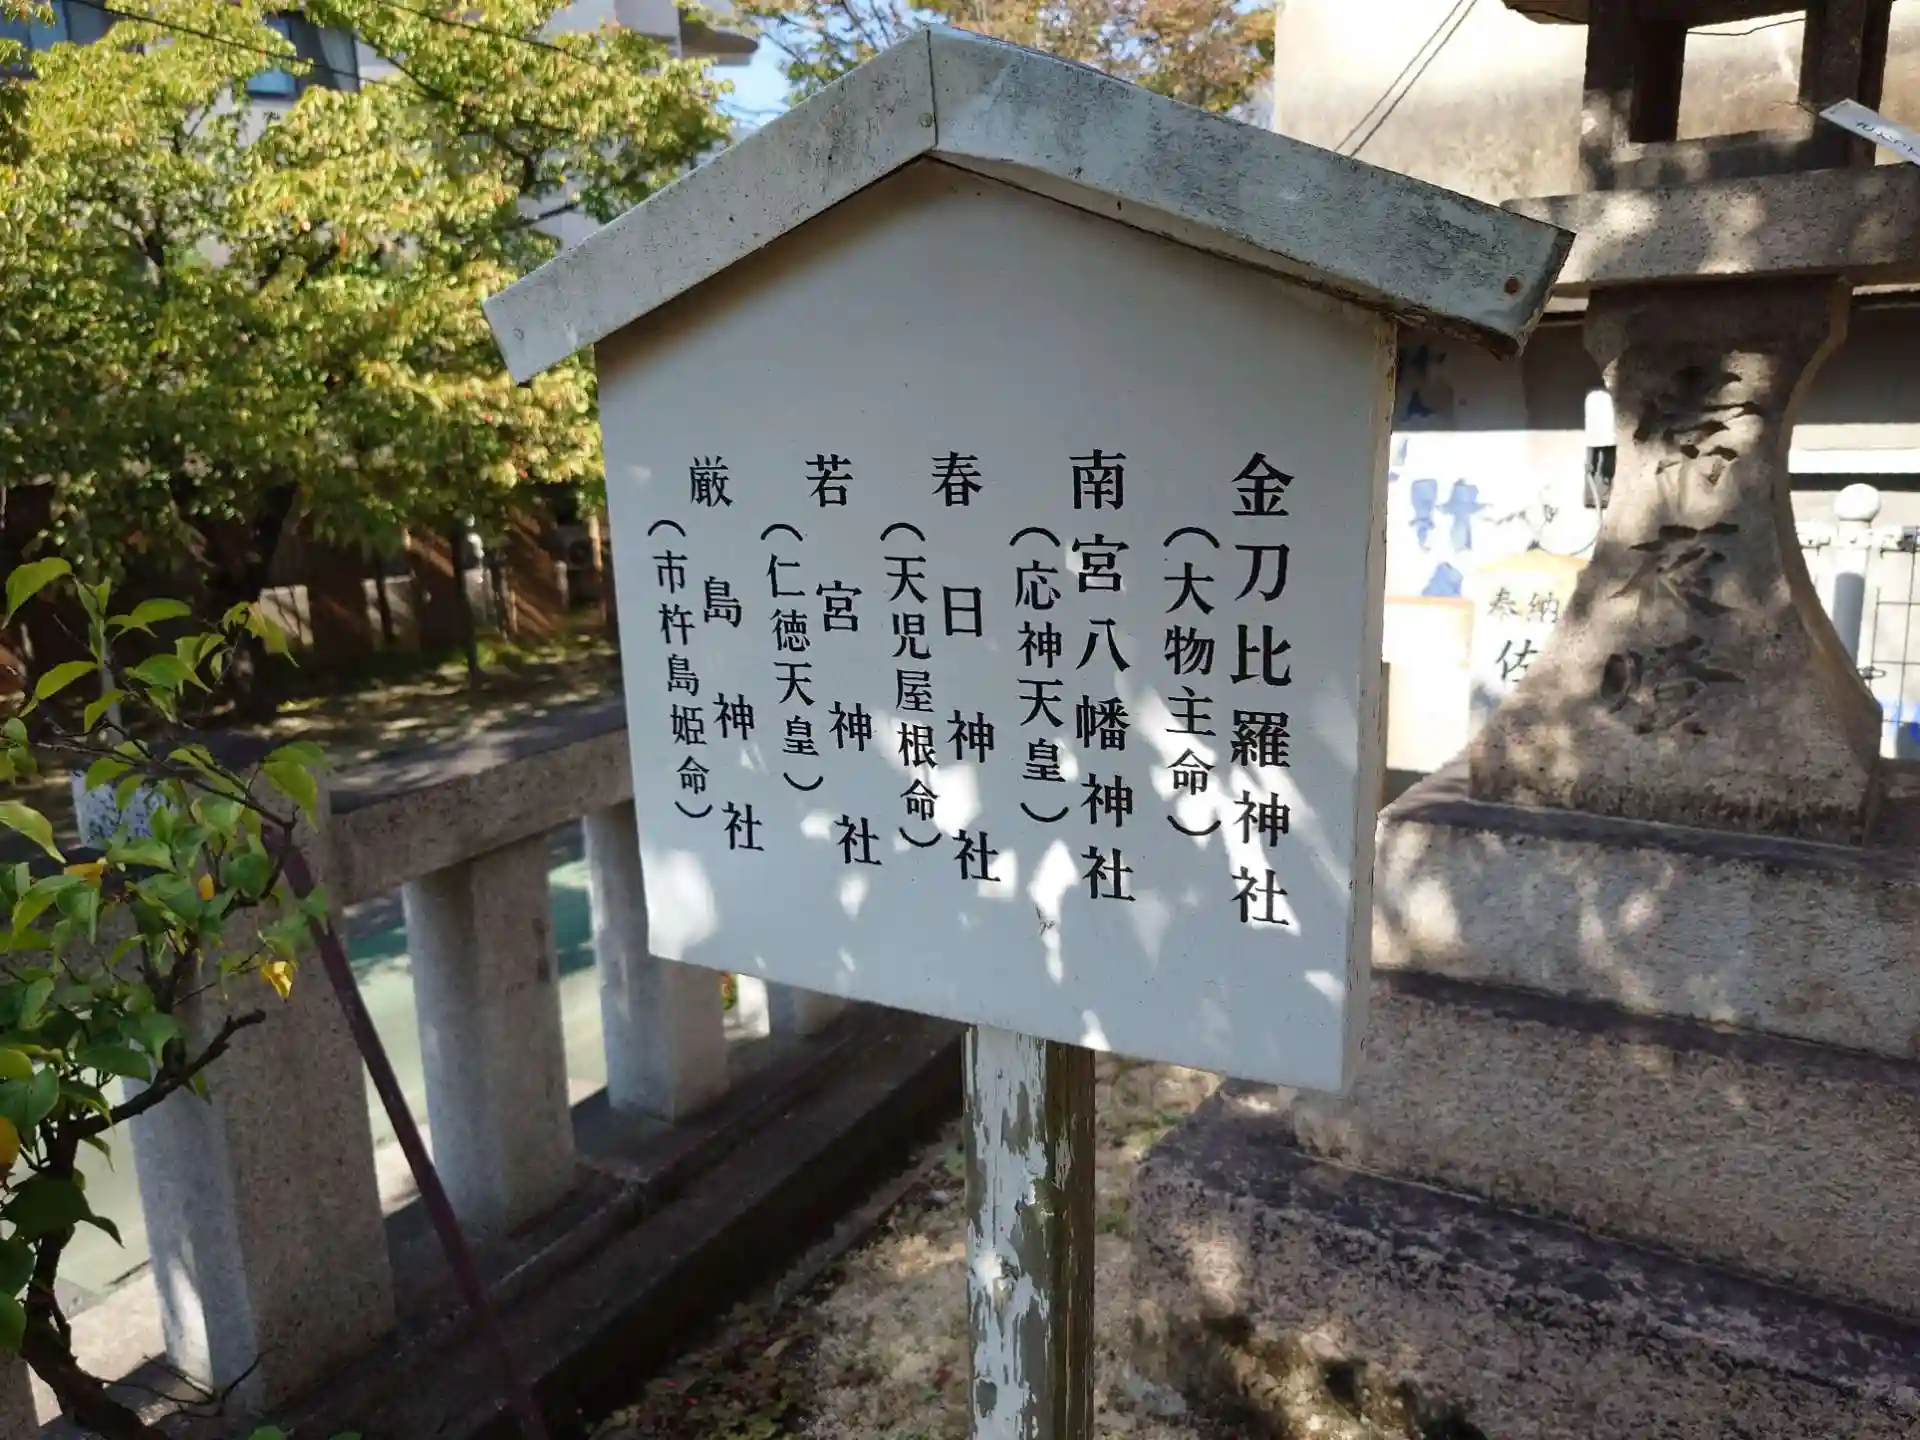 金刀比羅神社
（大物主命）
南宮八幡神社
（応神天皇）
春日神社
（天児屋根命）
若宮神社
（仁徳天皇）
厳島神社
（市杵島姫命）
常夜燈
奉納
佐